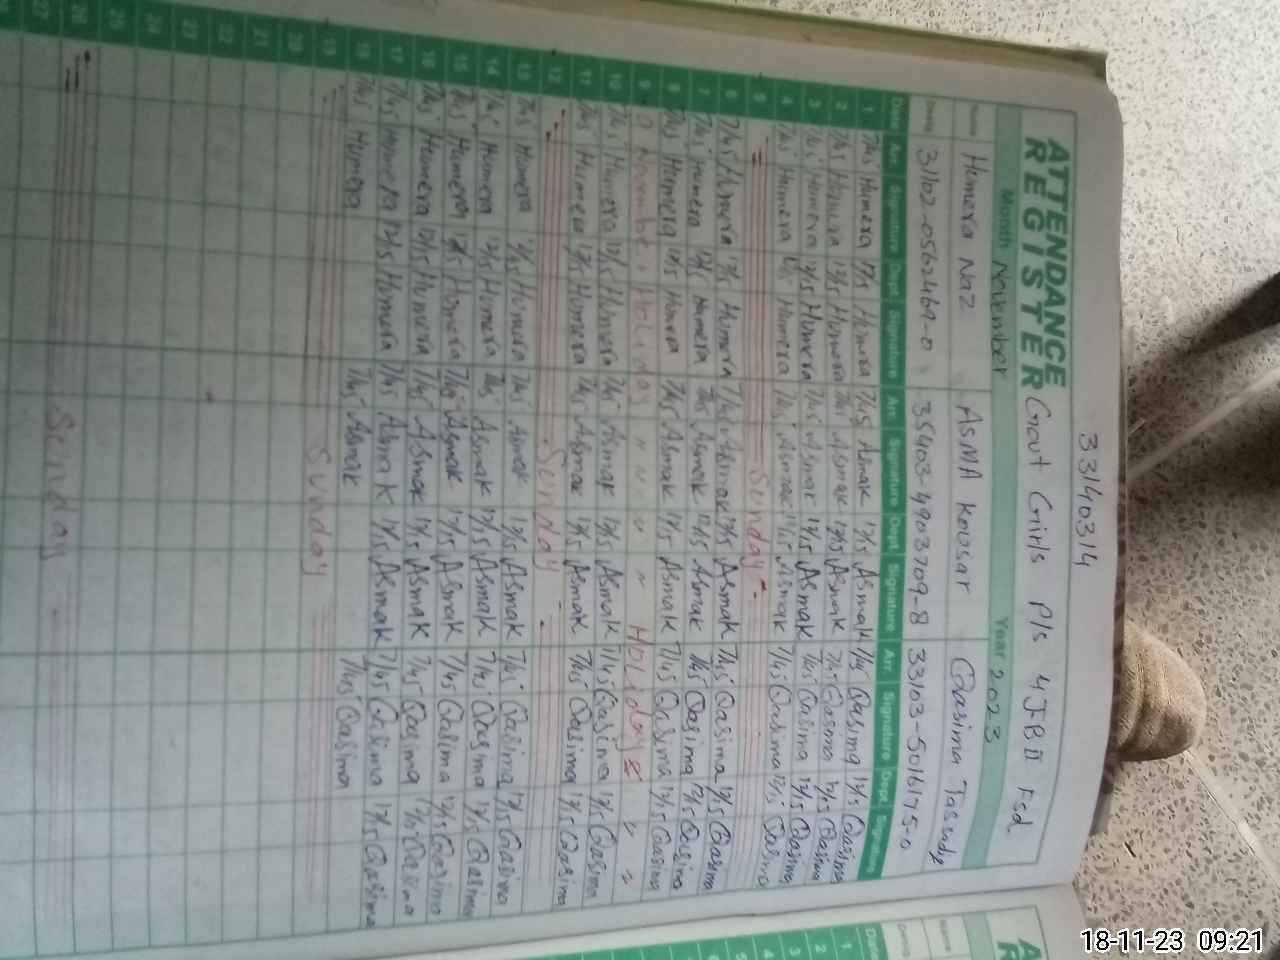 33140314
ATTENDANCE REGISTER Govt Girls P/s 4 JB II Fsd
Month November Year 2023
Name Humera Naz ASMA Kousar Qasima Tassadq
31102-0562469-0 35403-4903709-8 33103-5016175-0
Date Arr. Signature Dept. Signature Arr. Signature Dept. Signature Arr. Signature Dept. Signature
1 7/45 Humera 12/15 Humera 7/45 Asmak 12/15 Asmak 7/45 Qasima 12/15 Qasima
2 7/45 Humera 12/15 Humera 7/45 Asmak 12/15 Asmak 7/45 Qasima 12/15 Qasima
3 7/45 Humera 12/15 Humera 7/45 Asmak 12/15 Asmak 7/45 Qasima 12/15 Qasima
4 7/45 Humera 12/15 Humera 7/45 Asmak 12/15 Asmak 7/45 Qasima 12/15 Qasima
5 Sunday
6 7/45 Humera 12/15 Humera 7/45 Asmak 12/15 Asmak 7/45 Qasima 12/15 Qasima
7 7/45 Humera 12/15 Humera 7/45 Asmak 12/15 Asmak 7/45 Qasima 12/15 Qasima
8 7/45 Humera 12/15 Humera 7/45 Asmak 12/15 Asmak 7/45 Qasima 12/15 Qasima
9 9 November Holiday " " " " " HOLiday " "
10 7/45 Humera 12/15 Humera 7/45 Asmak 12/15 Asmak 7/45 Qasima 12/15 Qasima
11 7/45 Humera 12/15 Humera 7/45 Asmak 12/15 Asmak 7/45 Qasima 12/15 Qasima
12 Sunday
13 7/45 Humera 12/15 Humera 7/45 Asmak 12/15 Asmak 7/45 Qasima 12/15 Qasima
14 7/45 Humera 12/15 Humera 7/45 Asmak 12/15 Asmak 7/45 Qasima 12/15 Qasima
15 7/45 Humera 12/15 Humera 7/45 Asmak 12/15 Asmak 7/45 Qasima 12/15 Qasima
16 7/45 Humera 12/15 Humera 7/45 Asmak 12/15 Asmak 7/45 Qasima 12/15 Qasima
17 7/45 Humera 12/15 Humera 7/45 Asmak 12/15 Asmak 7/45 Qasima 12/15 Qasima
7/45 Humera 7/45 Asmak 7/45 Qasima
19 Sunday
20
21
22
23
24
25
26 Senday
27
Date
1
2
3
4
5
6
18-11-23 09:21